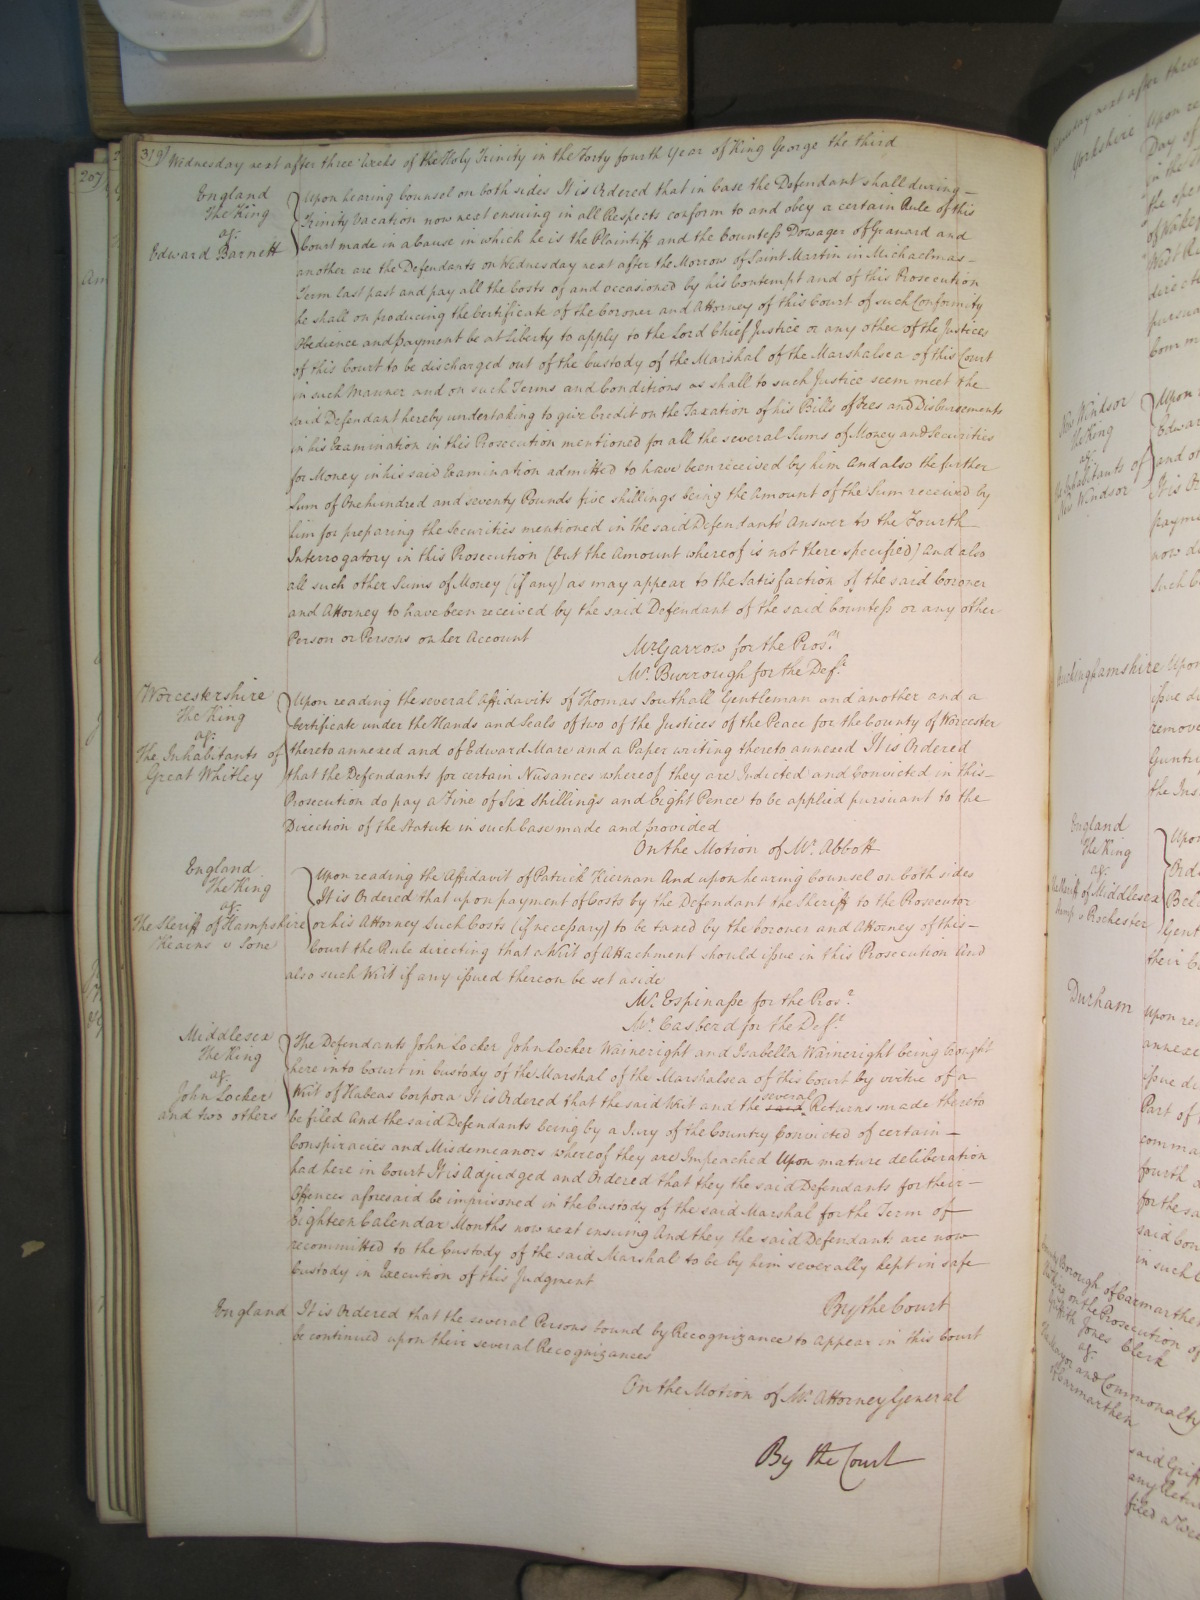 319
Wednesday next after three Weeks of the Holy Trinity in the Forty fourth Year of King George the third
England
The King
agt
Edward Barnett
Upon hearing Counsel on both sides It is Ordered that in Case the Defendant shall during
Trinity Vacation now next ensuing in all Respects conform to and obey a certain Rule of this
Court made in a Cause in which he is the Plaintiff and the Countess Dowager of Granard and
another are the Defendants on Wednesday next after the Morrow of Saint Martin in Michaelmas
Term last past and pay all the Costs of and occasioned by his Contempt and of this Prosecution
he shall on producing the Certificate of the Coroner and Attorney of this Court of such Conformity
Obedience and payment be at Liberty to apply to the Lord Chief Justice or any other of the Justices
of this Court to be discharged out of the Custody of the Marshal of the Marshalsea of this Court
in such Manner and on such Terms and Conditions as shall to such Justice seem meet the
said Defendant hereby undertaking to give Credit on the Taxation of his Bills of Fees and Disbursements
in his Examination in this Prosecution mentioned for all the several Sums of Money and Securities
for Money in his said Examination admitted to have been received by him And also the further
Sum of One hundred and seventy Pounds five shillings being the Amount of the Sum received by
him for preparing the Securities mentioned in the said Defendants Answer to the Fourth
Interrogatory in this Prosecution (but the Amount whereof is not there specified) And also
all such other Sums of Money (if any) as may appear to the Satisfaction of the said Coroner
and Attorney to have been received by the said Defendant of the said Countess or any other
Person or Persons on her Account
Mr Garrow for the Prosr
Mr Burrough for the Deft
Worcestershire
The King
agt
The Inhabitants of
Great Whitley
Upon reading the several Affidavits of Thomas Southall Gentleman and another and a
Certificate under the Hands and Seals of two of the Justices of the Peace for the County of Worcester
thereto annexed and of Edward Mare and a Paper writing thereto annexed It is Ordered
that the Defendants for certain Nusances whereof they are Indicted and Convicted in this
Prosecution do pay a Fine of Six Shillings and Eight Pence to be applied pursuant to the
Direction of the Statute in such Case made and provided
On the Motion of Mr Abbott
England
The King
agt
The Sheriff of Hampshire
Kearns v Sone
Upon reading the Affidavit of Patrick Kiernan And upon hearing Counsel on both sides
It is Ordered that upon payment of Costs by the Defendant the Sheriff to the Prosecutor
or his Attorney Such Costs (if necessary) to be taxed by the Coroner and Attorney of this
Court the Rule directing that a Writ of Attachment should issue in this Prosecution And
also such Writ if any issued thereon be set aside
Mr Espinasse for the Prosr
Mr Casberd for the Deft
Middlesex
The King
agt
John Locker
and two others
The Defendants John Locker John Locker Waineright and Isabella Waineright being brought
here into Court in Custody of the Marshal of the Marshalsea of this Court by virtue of a
Writ of Habeas Corpora It is Ordered that the said Writ and the said several Returns made thereto
be filed And the said Defendants being by a Jury of the Country Convicted of certain
Conspiracies and Misdemeanors whereof they are Impeached Upon mature deliberation
had here in Court It is Adjudged and Ordered that they the said Defendants for their
Offences aforesaid be imprisoned in the Custody of the said Marshal for the Term of
Eighteen Calendar Months now next ensuing And they the said Defendants are now
recommitted to the Custody of the said Marshal to be by him severally kept in safe
Custody in Execution of this Judgment
By the Court
England
It is Ordered that the several Persons bound by Recognizance to appear in this Court
be continued upon their several Recognizances
On the Motion of Mr Attorney General
By the Court
207
Yorkshire
New Windsor
The King
agt
Inhabitants of
New Windsor
Buckinghamshire
England
The King
agt
The Sheriff of Middlesex
v Rochester
Durham
Borough of Carmarthen
on the Prosecution of
Griffith Jones Clerk
agt
The Mayor and Commonalty
of Carmarthen